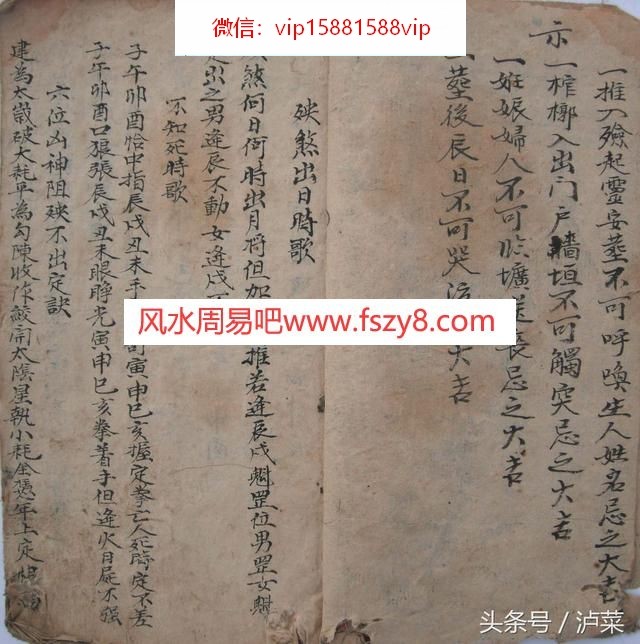 微信：vip15881588vip
一推入殮起靈安葬不可呼喚生人姓名忌之大吉
示一棺槨入出门户牆垣不可觸突忌之大吉
一姙娠婦人不可臨壙送喪忌之大吉
一葬後辰日不可哭泣大吉
殃煞出日時歌
煞何日何時出月将但加
推若逢辰戌魁罡位男罡女魁
定出之男逢辰不動女逢戌
不知死時歌
子午卯酉恰中指辰戌丑未手
寅申巳亥握定拳亡人死時定不差
子午卯酉口狼張辰戌丑未眼睁光寅申巳亥拳着手但逢火日屍不强
六位凶神阻殃不出定訣
建為太歲破大耗平為勾陳收作
開太陰星執小耗
年上定
风水周易吧www.fszy8.com
头条号／泸菜